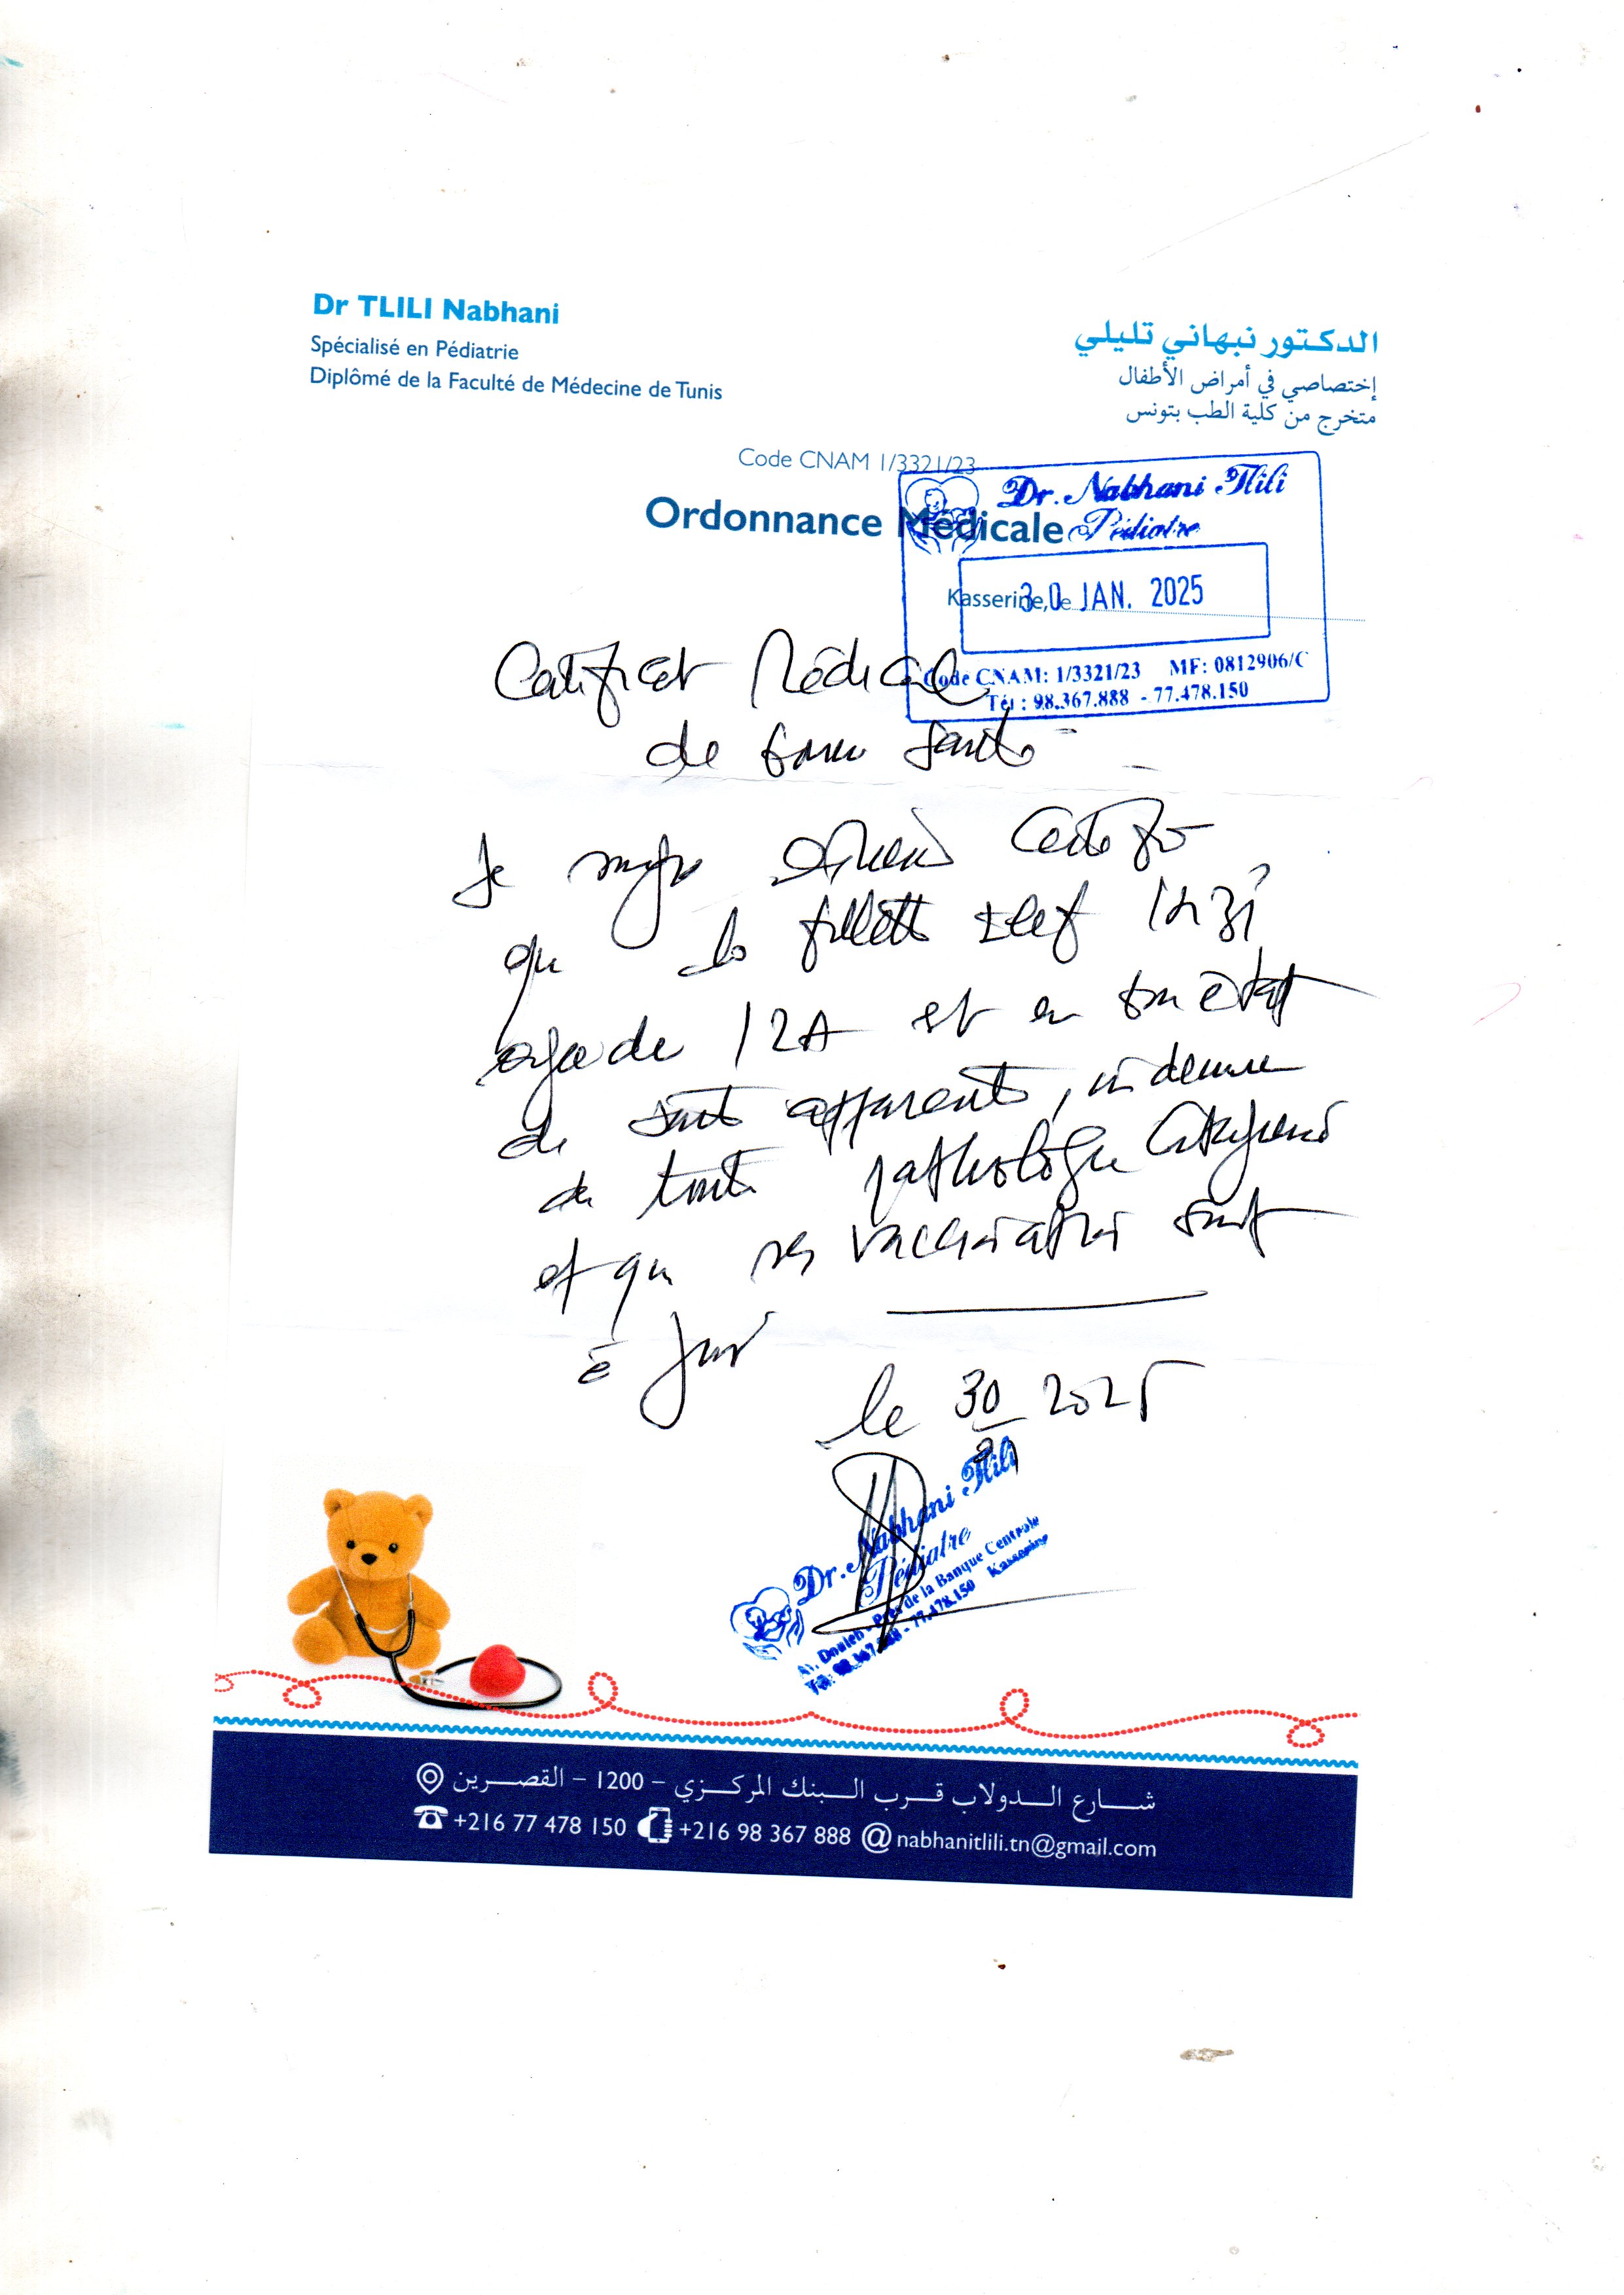 Dr TLILI Nabhani
Spécialisé en Pédiatrie
Diplômé de la Faculté de Médecine de Tunis
الدكتور نبهاني تليلي
إختصاصي في أمراض الأطفال
متخرج من كلية الطب بتونس
Code CNAM 1/3321/23
Ordonnance Médicale
Dr. Nabhani Tlili
Pédiatre
Kasserine, le
30 JAN. 2025
Code CNAM: 1/3321/23 MF: 0812906/C
Tél : 98.367.888 - 77.478.150
Certificat Médical
de bonne santé
Je soussigné certifie
que la fillette Ilef
agée de 12A est en bon état
de santé apparente, indemne
de toute pathologie contagieuse
et que ses vaccination sont
à jour
le 30/01 2025
Dr. Nabhani Tlili
Pédiatre
Av. Douleb - Près de la Banque Centrale
Tél: 98.367.888 - 77.478.150 Kasserine
شارع الدولاب قرب البنك المركزي – 1200 – القصرين
+216 77 478 150 +216 98 367 888 @ nabhanitlili.tn@gmail.com